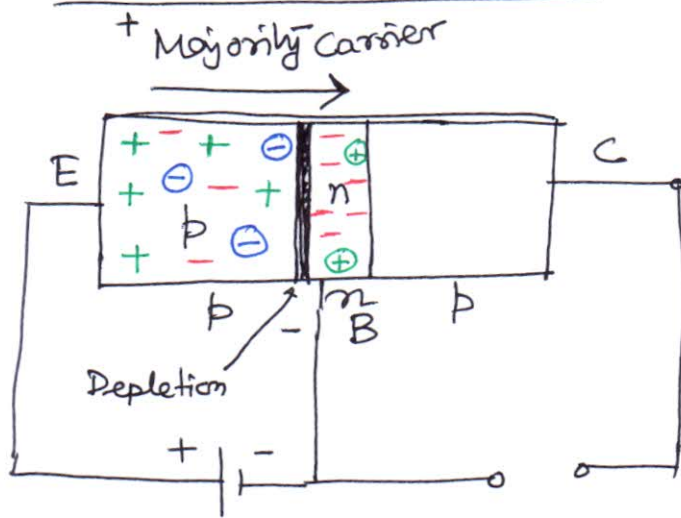 + Majority Carrier
E
C
p
n
p
n
p
-
B
Depletion
+ -